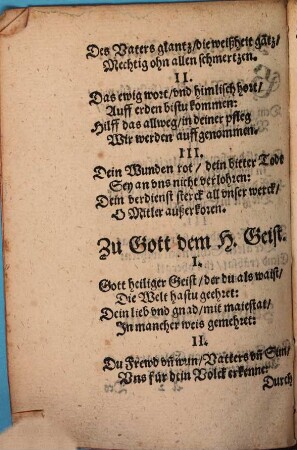 Des Vaters glantz/die weißheit gātz/
Mechtig ohn allen schmertzen.
II.
Das ewig wort/vnd himlisch hort/
Auff erden bistu kommen:
Hilff das allweg/in deiner pfleg
Wir werden auff genommen.
III.
Dein Wunden rot/ dein bitter Todt
Sey an vns nicht verlohren:
Dein verdienst sterck all vnser werck/
O Mitler außerkoren.
Zu Gott dem H. Geist.
I.
Gott heiliger Geist/der du als waist/
Die Welt hastu geehret:
Dein lieb vnd gnad/mit maiestat/
In mancher weis gemehret:
II.
Du Frewd vn̄ wun/Vatters vn̄ Sun/
Vns für dein Volck erkenne:
Durch